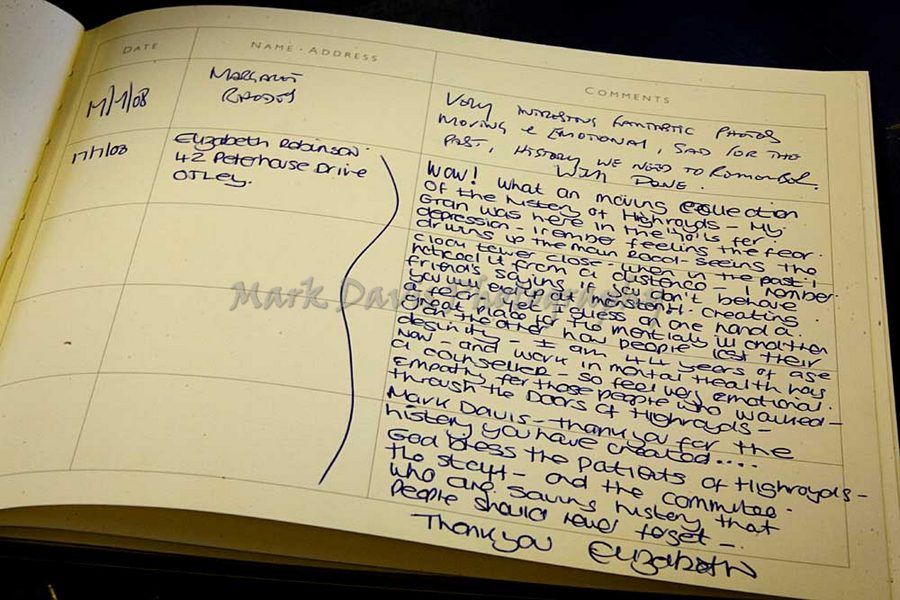 DATE
NAME · ADDRESS
COMMENTS
17/1/08
MARGARET
RHODES
VERY INTERESTING FANTASTIC PHOTOS
MOVING & EMOTIONAL, SAD FOR THE
PAST, HISTORY WE NEED TO REMEMBER.
WELL DONE.
17/1/08
Elizabeth Robinson.
42 Peterhouse Drive
OTLEY.
WOW! What an moving collection
Of the history of Highroyds - My
Gran was here in the for
depression - I remember feeling the fear.
driving up the main road - seeing the
clock tower close, when in the past I
noticed it from a distance - I remember
friends saying if you don't behave
you will end up in there. creating
a fear - I guess on one hand a
Great place for the mentally ill and then
on the other how people lost their
dignity - I am 44 years of age
now - and work in mental health as
a counseller - so feel very emotional.
Empathy for those people who walked -
through the Doors of Highroyds -
Mark Davis - thankyou for the
history you have created....
God bless the patients of Highroyds -
the staff - and the committee -
who are saving history that
people should never forget -.
Thankyou Elizabeth
Mark Davis Photography